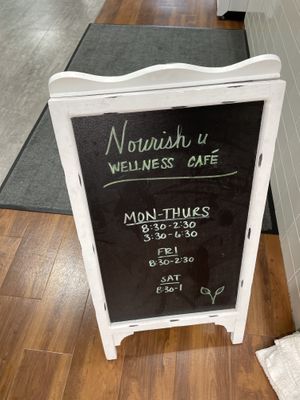 Nourish u
WELLNESS CAFÉ
MON-THURS
8:30-2:30
3:30-6:30
FRI
8:30-2:30
SAT
8:30-1